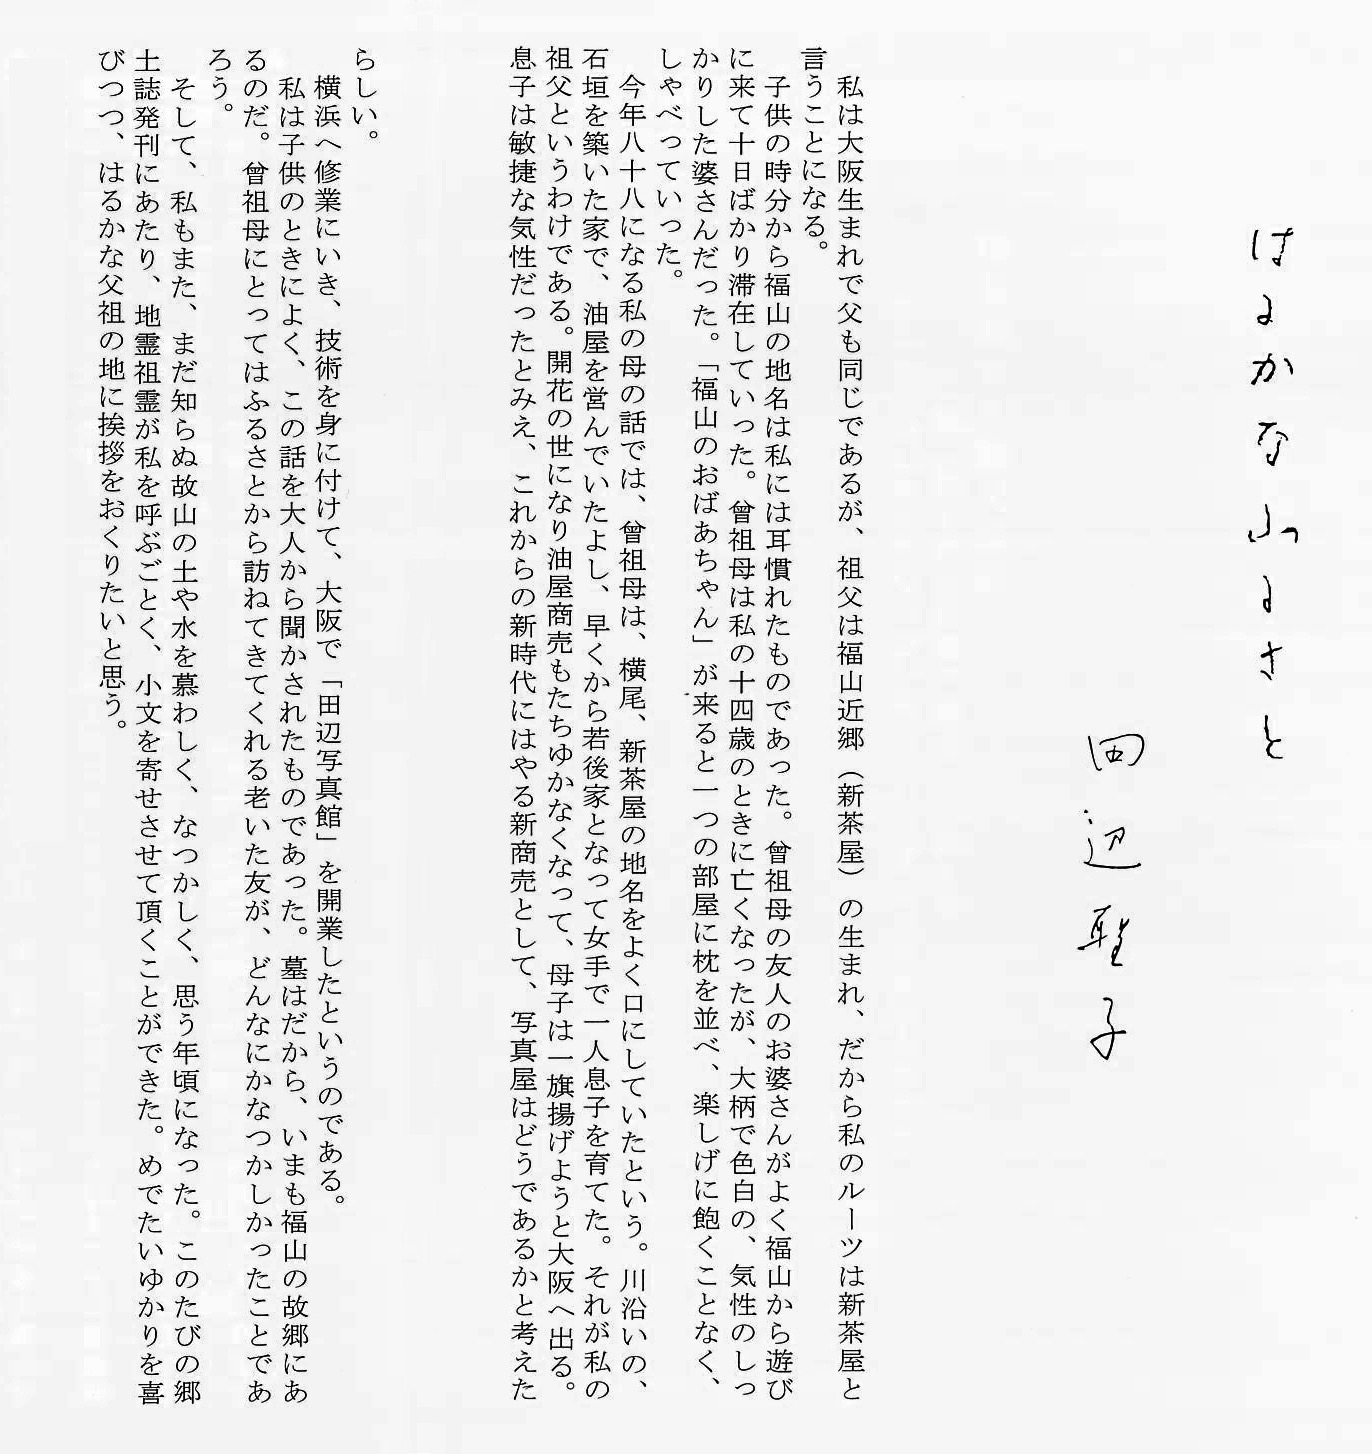 はるかなふるさと
田辺聖子
私は大阪生まれで父も同じであるが、祖父は福山近郷（新茶屋）の生まれ、だから私のルーツは新茶屋と
言うことになる。
子供の時分から福山の地名は私には耳慣れたものであった。曾祖母の友人のお婆さんがよく福山から遊び
に来て十日ばかり滞在していった。曾祖母は私の十四歳のときに亡くなったが、大柄で色白の、気性のしっ
かりした婆さんだった。「福山のおばあちゃん」が来ると一つの部屋に枕を並べ、楽しげに飽くことなく、
しゃべっていった。
今年八十八になる私の母の話では、曾祖母は、横尾、新茶屋の地名をよく口にしていたという。川沿いの、
石垣を築いた家で、油屋を営んでいたよし、早くから若後家となって女手で一人息子を育てた。それが私の
祖父というわけである。開花の世になり油屋商売もたちゆかなくなって、母子は一旗揚げようと大阪へ出る。
息子は敏捷な気性だったとみえ、これからの新時代にはやる新商売として、写真屋はどうであるかと考えた
らしい。
横浜へ修業にいき、技術を身に付けて、大阪で「田辺写真館」を開業したというのである。
私は子供のときによく、この話を大人から聞かされたものであった。墓はだから、いまも福山の故郷にあ
るのだ。曾祖母にとってはふるさとから訪ねてきてくれる老いた友が、どんなにかなつかしかったことであ
ろう。
そして、私もまた、まだ知らぬ故山の土や水を慕わしく、なつかしく、思う年頃になった。このたびの郷
土誌発刊にあたり、地霊祖霊が私を呼ぶごとく、小文を寄せさせて頂くことができた。めでたいゆかりを喜
びつつ、はるかな父祖の地に挨拶をおくりたいと思う。